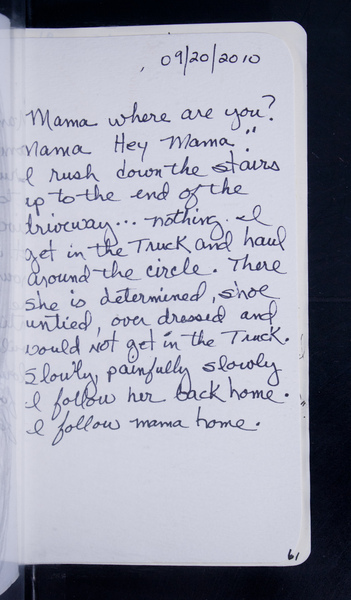 09/20/2010
Mama where are you?
Mama Hey Mama!!
I rush down the stairs
up to the end of the
driveway... nothing. I
get in the Truck and haul
around the circle. There
she is determined, shoe
untied, over dressed and
would not get in the Truck.
Slowly, painfully slowly
I follow her back home.
I follow mama home.
61